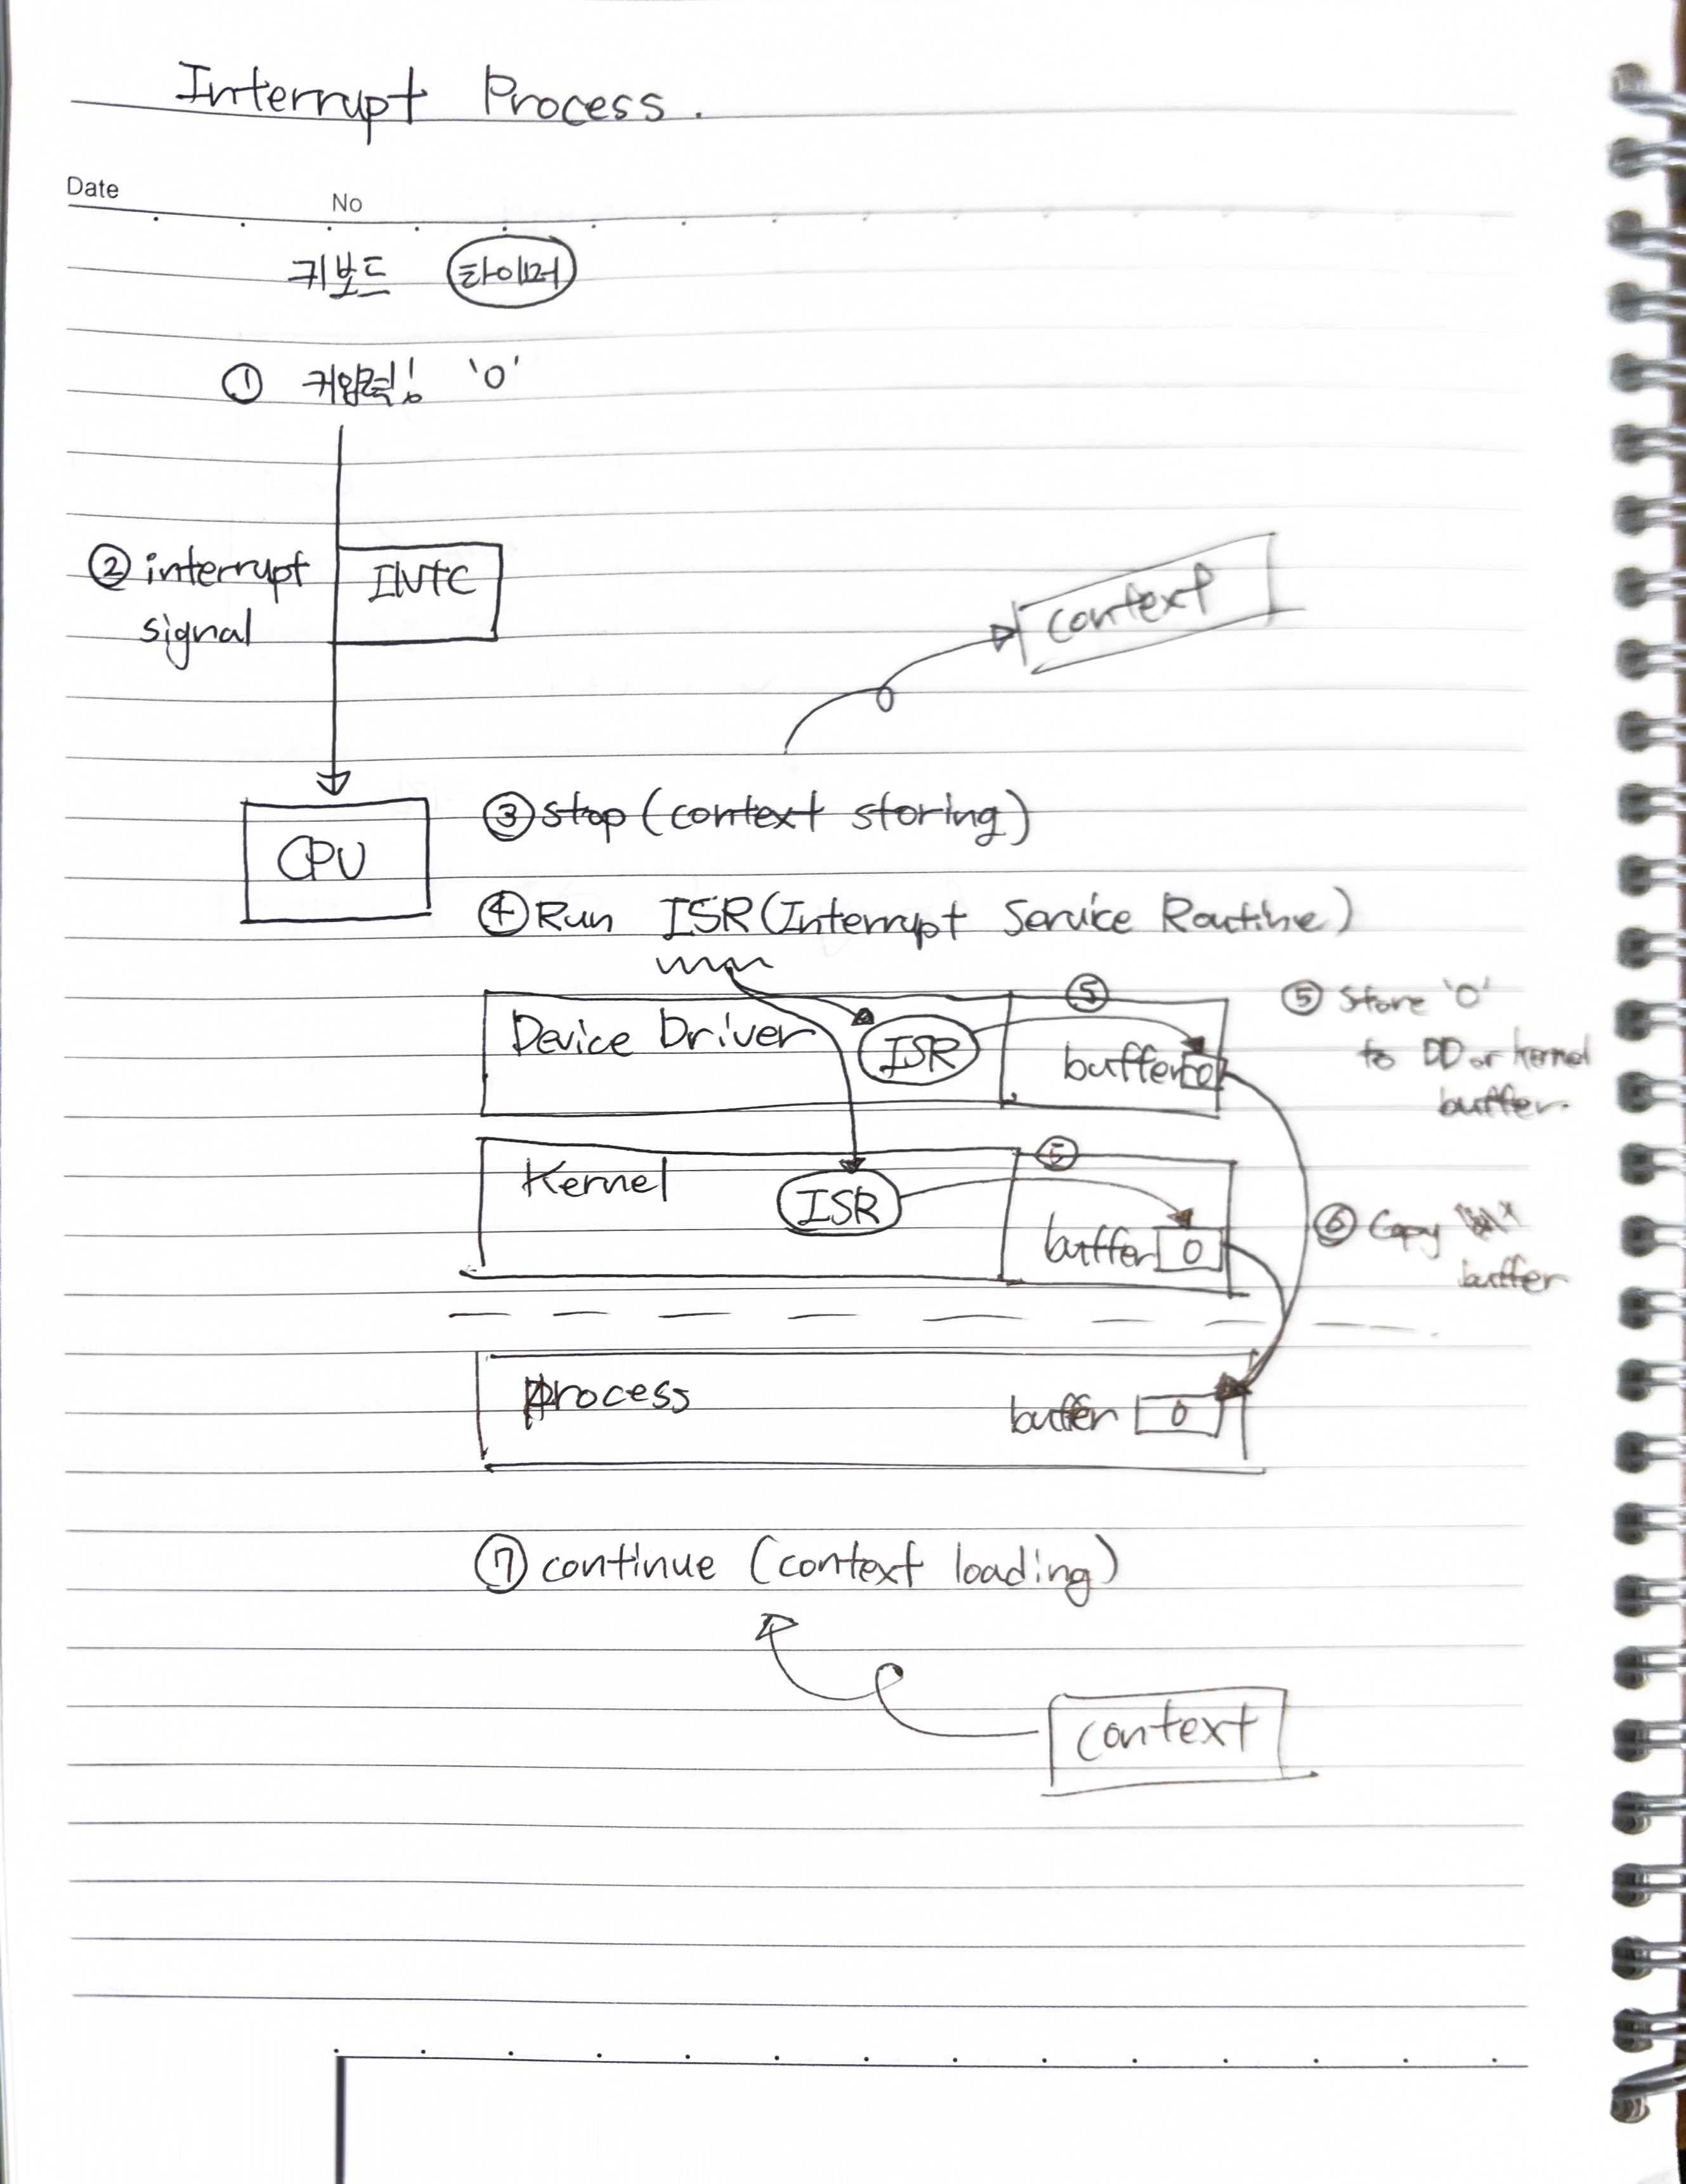 Interrupt Process.
Date
No
키보드 타이머
① 키입력! '0'
② interrupt
signal
INTC
context
CPU
③ stop (context storing)
④ Run ISR (Interrupt Service Routine)
Device Driver
ISR
⑤
buffer 0
⑤ Store '0'
to DD or kernel
buffer.
Kernel
ISR
⑤
buffer 0
⑥ Copy
buffer
process
buffer 0
⑦ continue (context loading)
context